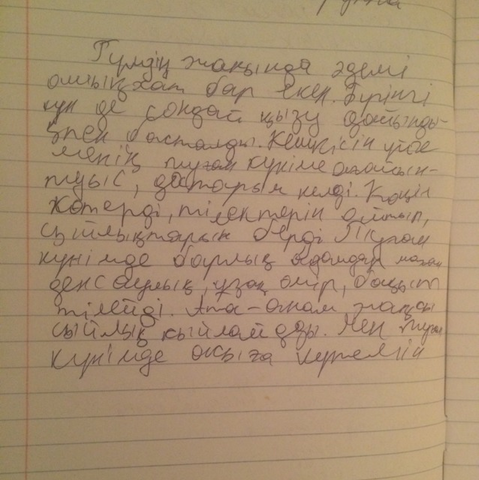 Гүлдің жанында әдемі
ашық хат бар екен. Бірінші
күн де сондай қызу дайынды-
қпен басталды. Кешкісін үйге
менің туған күніме ағайын-
туыс, достарым келді. Көңіл
көтерді, тілектерін айтып,
сыйлықтарын берді. Туған
күнімде барлық адамдар маған
денсаулық, ұзақ өмір, бақыт
тілейді. Ата-анам жақсы
сыйлық сыйлайды. Мен туған
күнімде